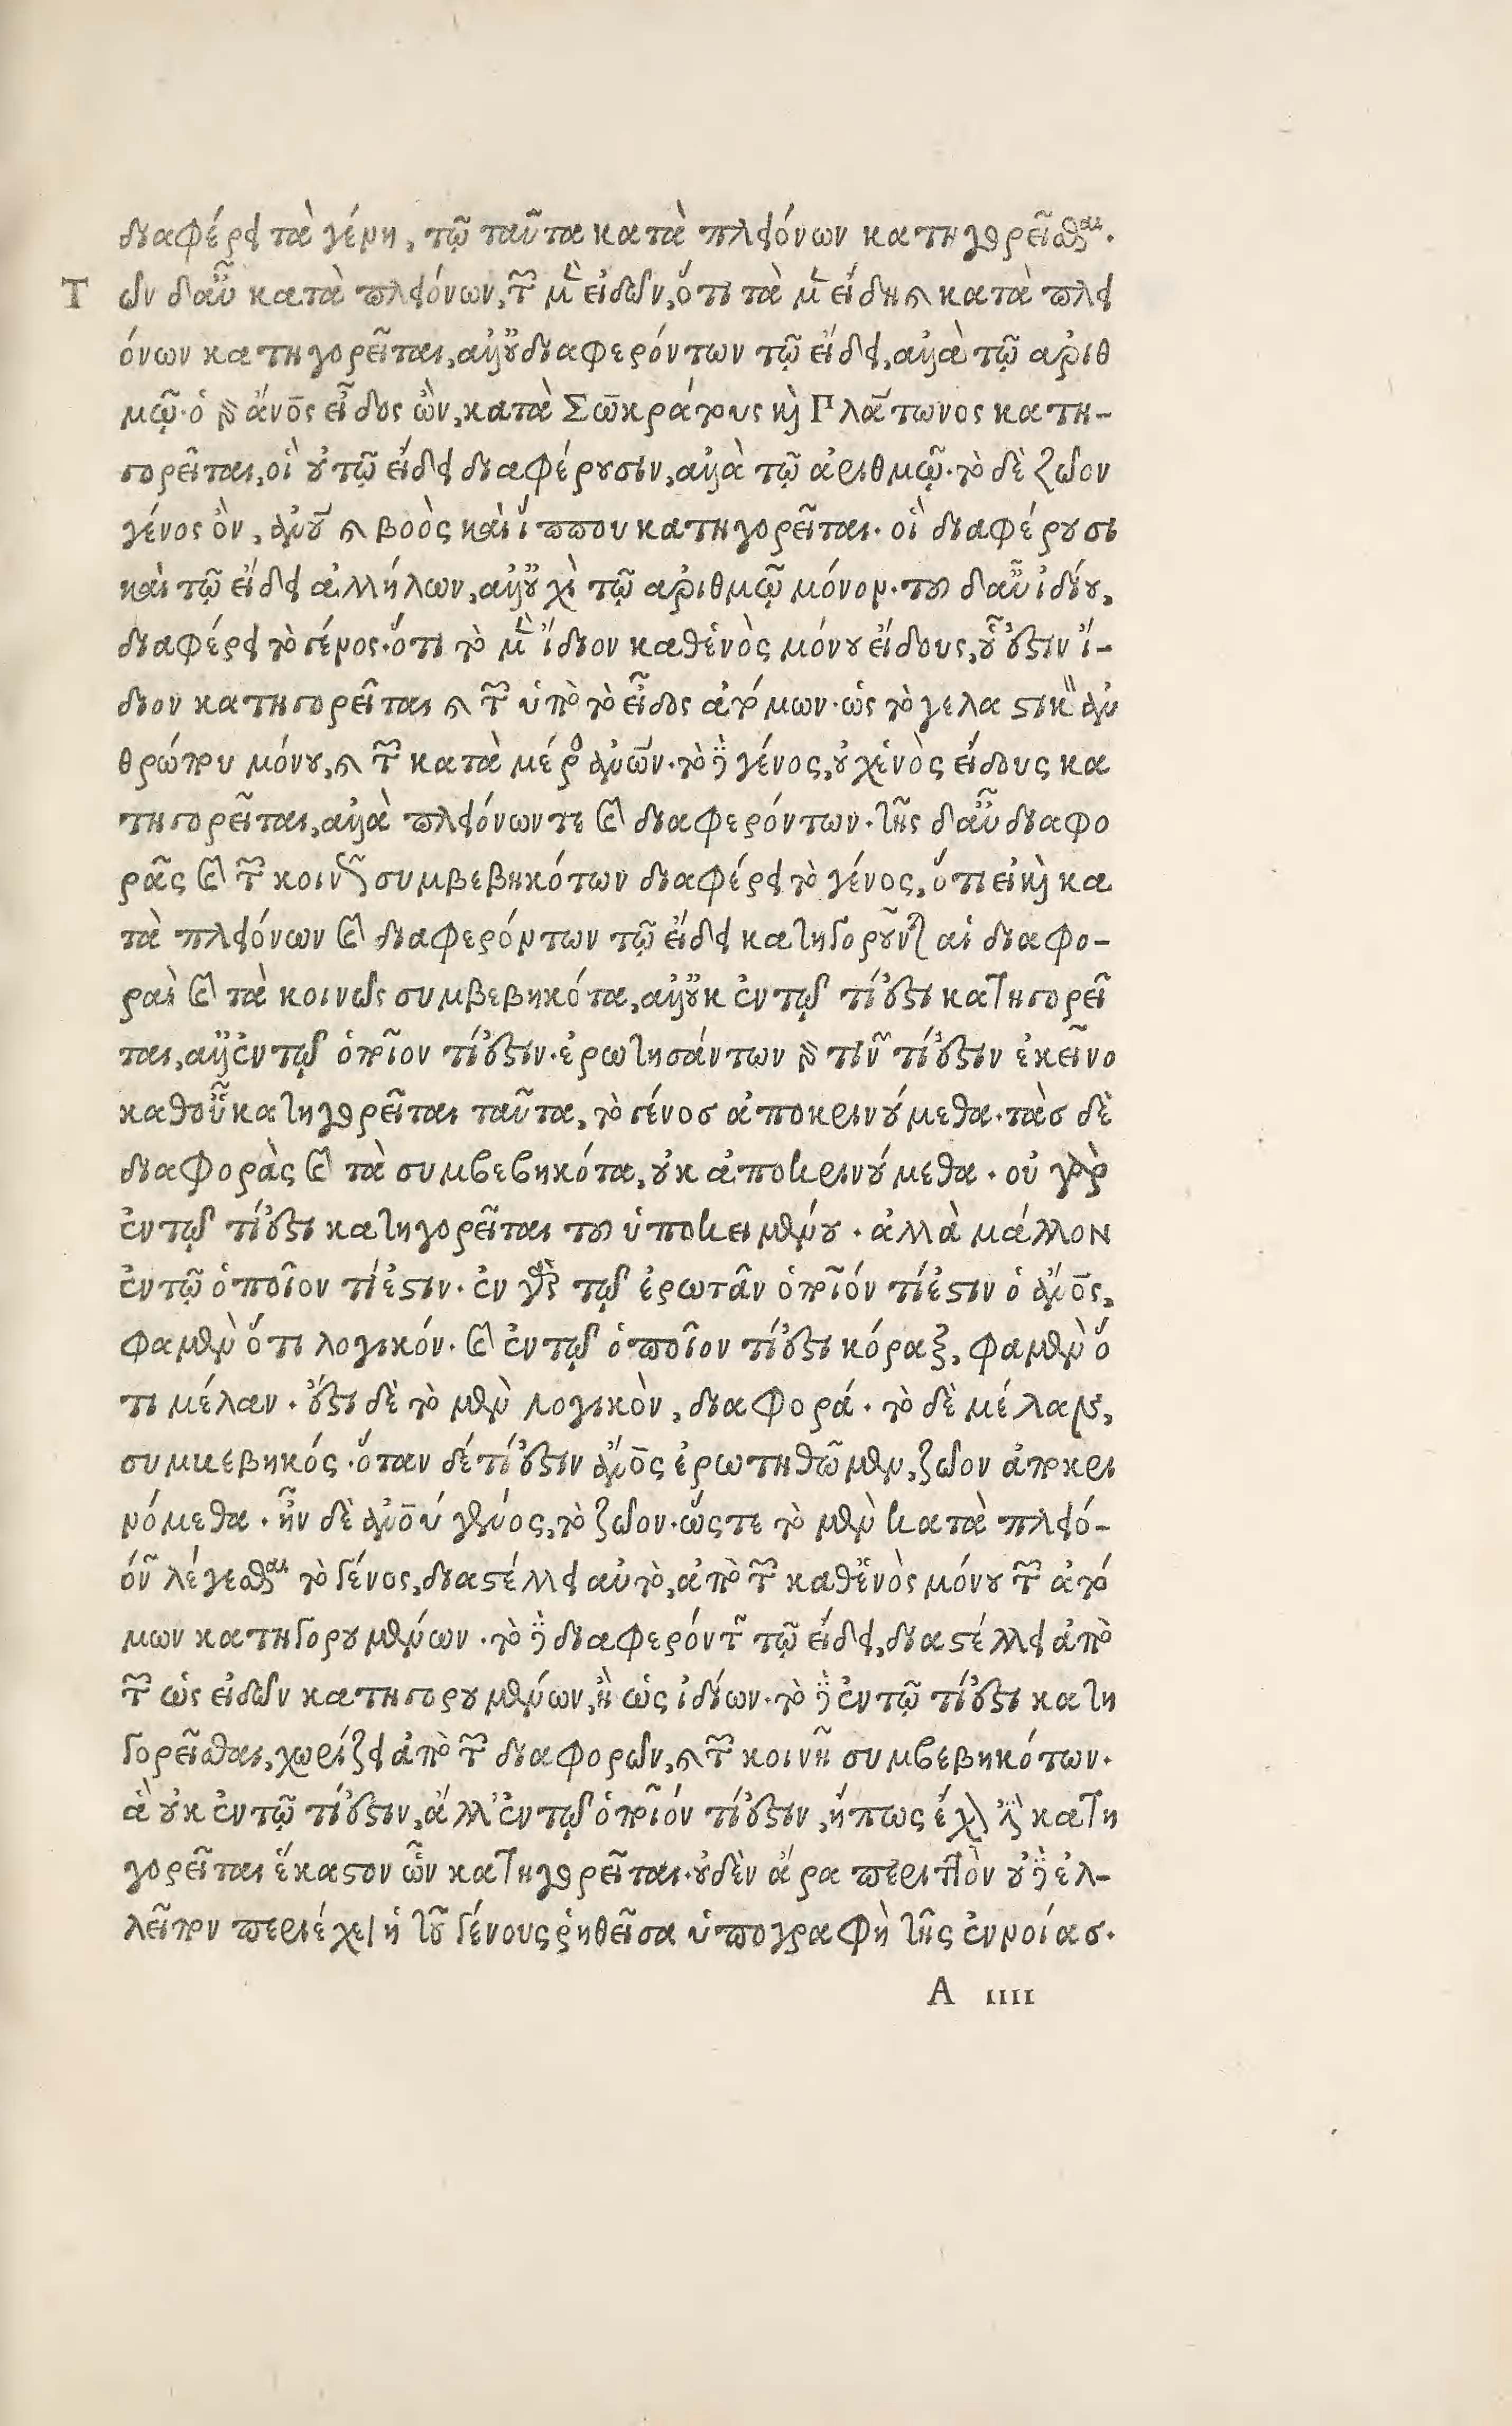 διαφέρει τὰ γένη, τῷ ταῦτα κατὰ πλειόνων κατηγορεῖσθαι.
Τῶν δαὖ κατὰ πλειόνων, τῶν μὲν εἰδῶν, ὅτι τὰ μὲν εἴδη καὶ κατὰ πλει
όνων κατηγορεῖται, ἀλλοὐ διαφερόντων τῷ εἴδει, ἀλλὰ τῷ ἀριθ
μῷ. ὁ γὰρ ἄνος εἶδος ὢν, κατὰ Σωκράτους καὶ Πλάτωνος κατη-
γορεῖται, οἳ οὐ τῷ εἴδει διαφέρουσιν, ἀλλὰ τῷ ἀριθμῷ. τὸ δὲ ζῶον
γένος ὂν, ἀνοῦ καὶ βοὸς καὶ ἵππου κατηγορεῖται. οἳ διαφέρουσι
καὶ τῷ εἴδει ἀλλήλων, ἀλλοὐχὶ τῷ ἀριθμῷ μόνον. τοῦ δαὖ ἰδίου,
διαφέρει τὸ γένος. ὅτι τὸ μὲν ἴδιον καθἑνὸς μόνου εἴδους, οὗ ἐστιν ἴ-
διον κατηγορεῖται καὶ τῶν ὑπὸ τὸ εἶδος ἀτόμων. ὡς τὸ γελαστικὸν ἀν
θρώπου μόνου, καὶ τῶν κατὰ μέρος ἀνῶν. τὸ δὲ γένος, οὐχἑνὸς εἴδους κα
τηγορεῖται, ἀλλὰ πλειόνων τε καὶ διαφερόντων. τῆς δαὖ διαφο
ρᾶς καὶ τῶν κοινῶς συμβεβηκότων διαφέρει τὸ γένος, ὅτι εἰ καὶ κα
τὰ πλειόνων καὶ διαφερόντων τῷ εἴδει κατηγοροῦνται αἱ διαφο-
ραὶ καὶ τὰ κοινῶς συμβεβηκότα, ἀλλοὐκ ἐν τῷ τί ἐστι κατηγορεῖ
ται, ἀλλἐν τῷ ὁποῖον τί ἐστιν. ἐρωτησάντων γὰρ τινῶν τί ἐστιν ἐκεῖνο
καθοὗ κατηγορεῖται ταῦτα, τὸ γένοσ ἀποκρινούμεθα. τὰσ δὲ
διαφορὰς καὶ τὰ συμβεβηκότα, οὐκ ἀποκρινούμεθα. οὐ γὰρ
ἐν τῷ τί ἐστι κατηγορεῖται τοῦ ὑποκειμένου. ἀλλὰ μάλλον
ἐν τῷ ὁποῖον τί ἐστιν. ἐν γὰρ τῷ ἐρωτᾶν ὁποῖόν τί ἐστιν ὁ ἄνος,
φαμὲν ὅτι λογικόν. καὶ ἐν τῷ ὁποῖον τί ἐστι κόραξ, φαμὲν ὅ
τι μέλαν. ἔστι δὲ τὸ μὲν λογικὸν, διαφορά. τὸ δὲ μέλαν,
συμκεβηκός. ὅταν δέ τί ἐστιν ἄνος ἐρωτηθῶμεν, ζῶον ἀποκρι
νόμεθα. ἦν δὲ ἀνοῦ γένος, τὸ ζῶον. ὥστε τὸ μὲν κατὰ πλειό-
όνων λέγεσθαι τὸ γένος, διαστέλλει αὐτὸ, ἀπὸ τῶν καθἑνὸς μόνου τῶν ἀτό
μων κατηγορουμένων. τὸ δὲ διαφερόντων τῷ εἴδει, διαστέλλει ἀπὸ
τῶν ὡς εἰδῶν κατηγορουμένων, ἢ ὡς ἰδίων. τὸ δὲ ἐν τῷ τί ἐστι κατη
γορεῖσθαι, χωρίζει ἀπὸ τῶν διαφορῶν, καὶ τῶν κοινῇ συμβεβηκότων.
ἃ οὐκ ἐν τῷ τί ἐστιν, ἀλλ' ἐν τῷ ὁποῖόν τί ἐστιν, ἢ πως ἔχον ἐστὶ κατη
γορεῖται ἕκαστον ὧν κατηγορεῖται. οὐδὲν ἄρα περιττὸν οὐδὲ ἐλ-
λεῖπον περιέχει ἡ τοῦ γένους ῥηθεῖσα ὑπογραφὴ τῆς ἐννοίασ.
A IIII